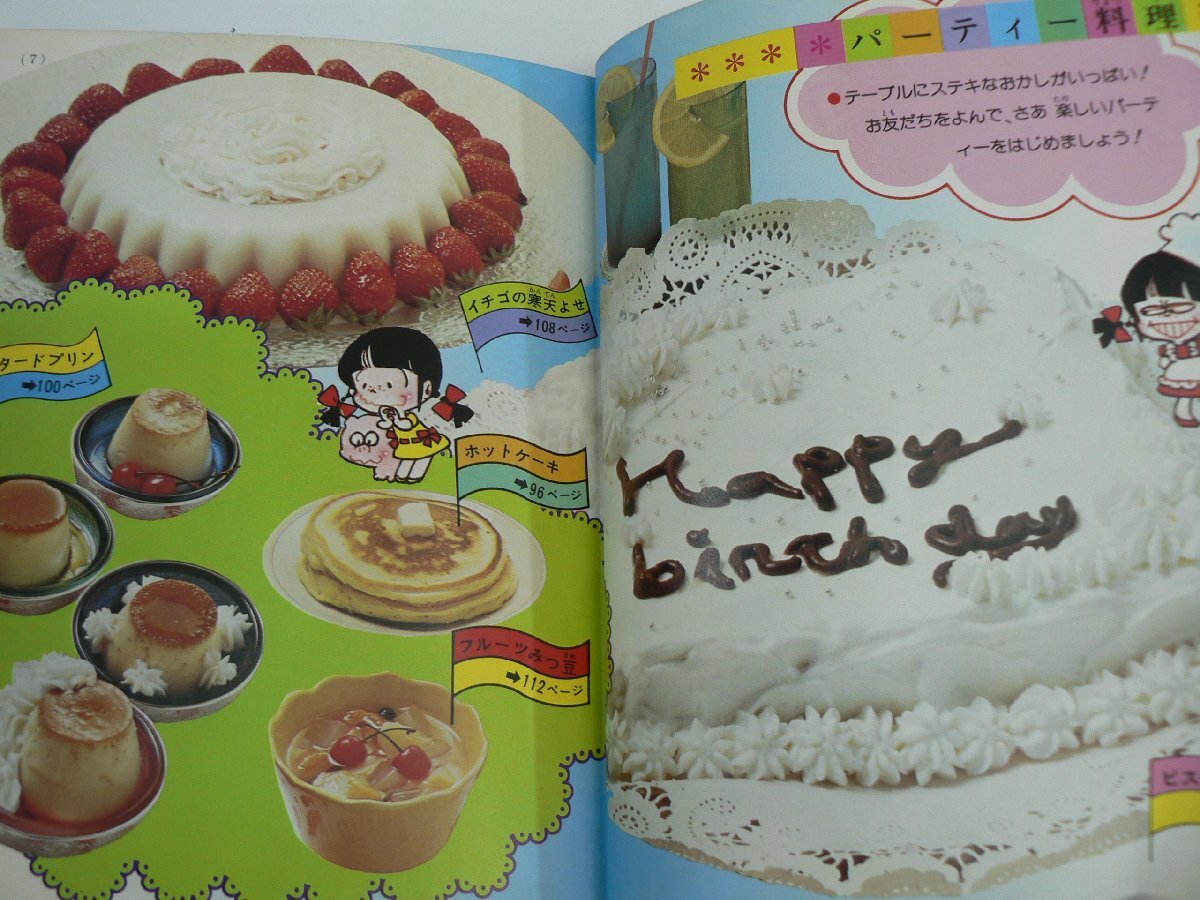 (7)
イチゴの寒天よせ
かんてん
➡108ページ
タードプリン
➡100ページ
ホットケーキ
➡96ページ
フルーツみつ豆
まめ
➡112ページ
＊＊＊＊パーティー料理
りょうり
●テーブルにステキなおかしがいっぱい!
お友だちをよんで、さあ 楽しいパーテ
とも
たの
ィーをはじめましょう!
Happy
birth day
ビス